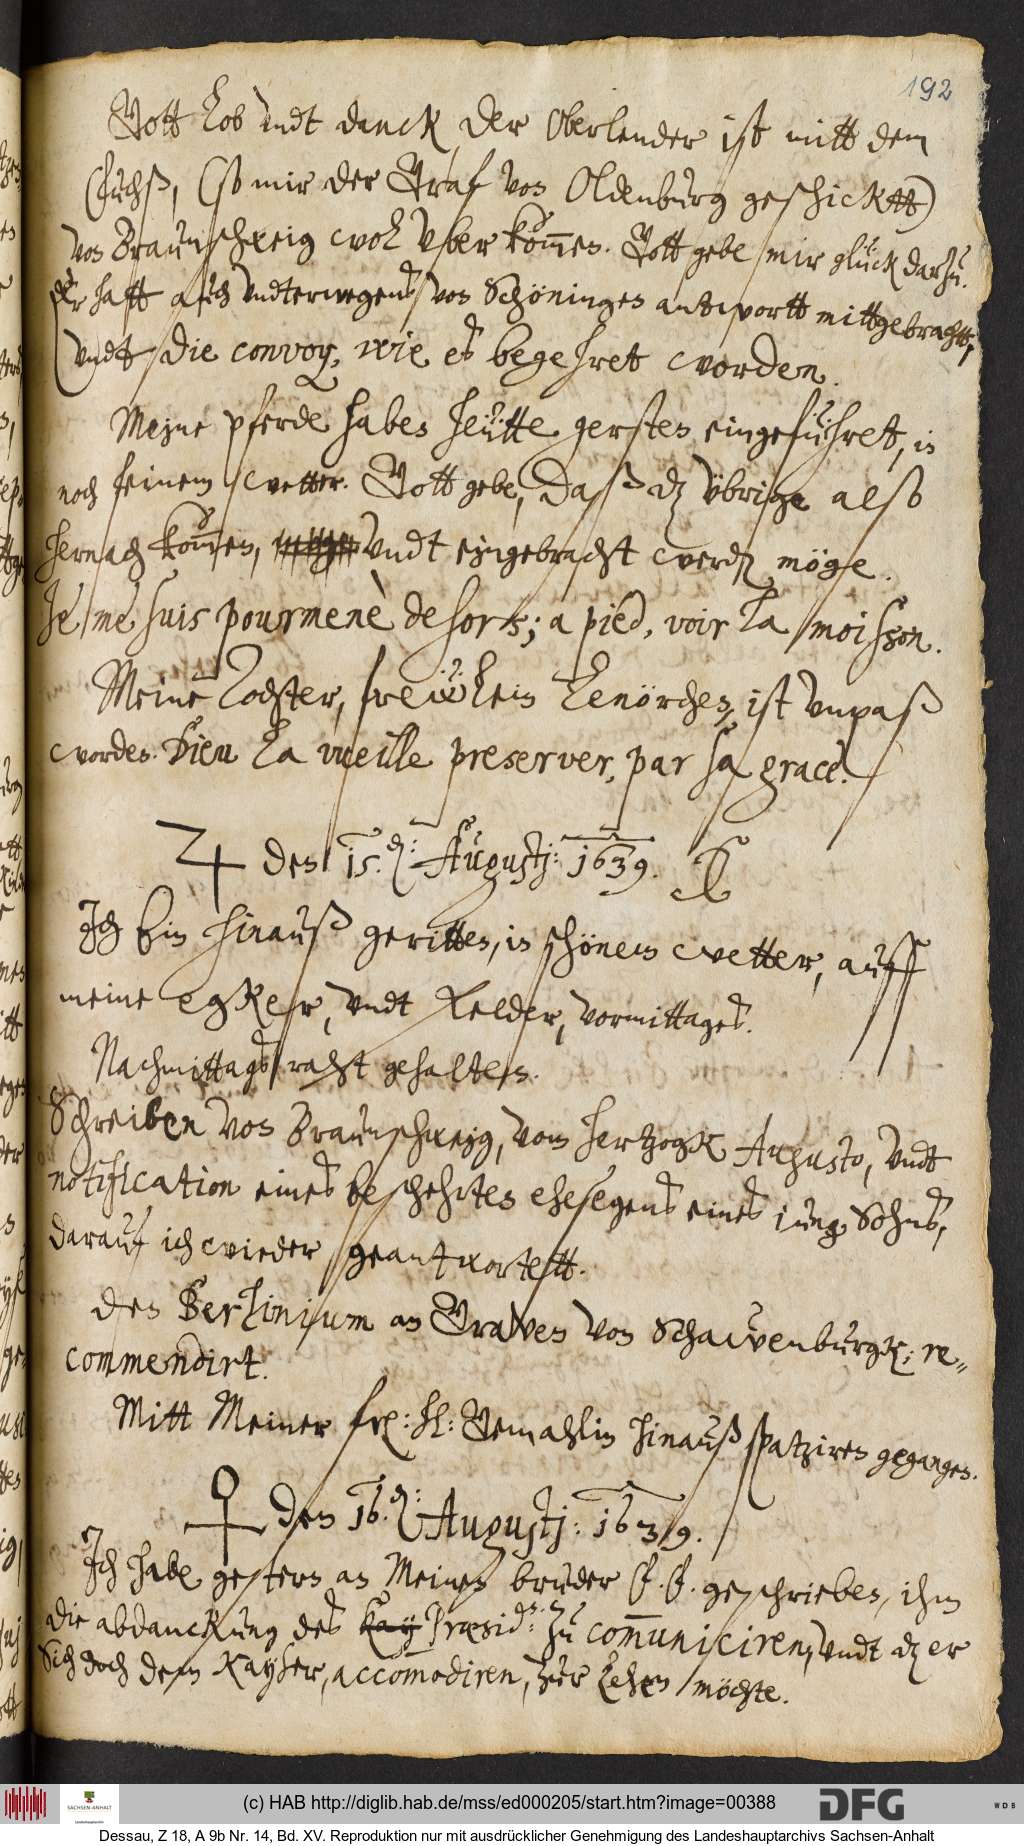 192
Gott lob vndt danck, der Oberlender ist mitt dem
Fuchß, (so mir der Graf von Oldenburg geschicktt)
von Braunschweig wol vberkommen. Gott gebe mir glück darzu.
Er hatt auch vndterwegens von Schöningen antwortt mittgebrachtt,
vndt die convoy, wie es begehret worden.
Meine pferde haben heütte gersten eingeführet, in
noch feinem wetter. Gott gebe, daß dz vbrige also
hernach kommen, vndt eingebracht werden möge.
Je me suis pourmenè dehors; a pied, voir la moisson.
Meine Tochter, frewlein Lenörchen, ist vnpaß
worden. Dieu la vueille preserver, par sa grace.
♃ den 15. d: Augustj: 1639.
Ich bin hinauß geritten, in schönem wetter, auff
meine egker, vndt felder, vormittages.
Nachmittags raht gehalten.
Schreiben von Braunschweig, vom hertzogk Augusto, vndt
notification eines beschehrten ehesegens eines iungen Sohns,
darauf ich wieder geantwortett.
den Berlinium an Graven von Schawenburgk: re-
commendirt.
Mitt Meiner frl: hl: Gemahlin hinauß spatziren gegangen.
♀ den 16. d: Augustj: 1639.
Ich habe gestern an Meinen bruder F. F. geschrieben, ihm
die abdanckung des Kay Præsid: zu communiciren, vndt dz er
Sich doch dem Kayser, accommodiren, zur Lehen möchte.
(c) HAB http://diglib.hab.de/mss/ed000205/start.htm?image=00388
SACHSEN-ANHALT
DFG
WDB
Dessau, Z 18, A 9b Nr. 14, Bd. XV. Reproduktion nur mit ausdrücklicher Genehmigung des Landeshauptarchivs Sachsen-Anhalt